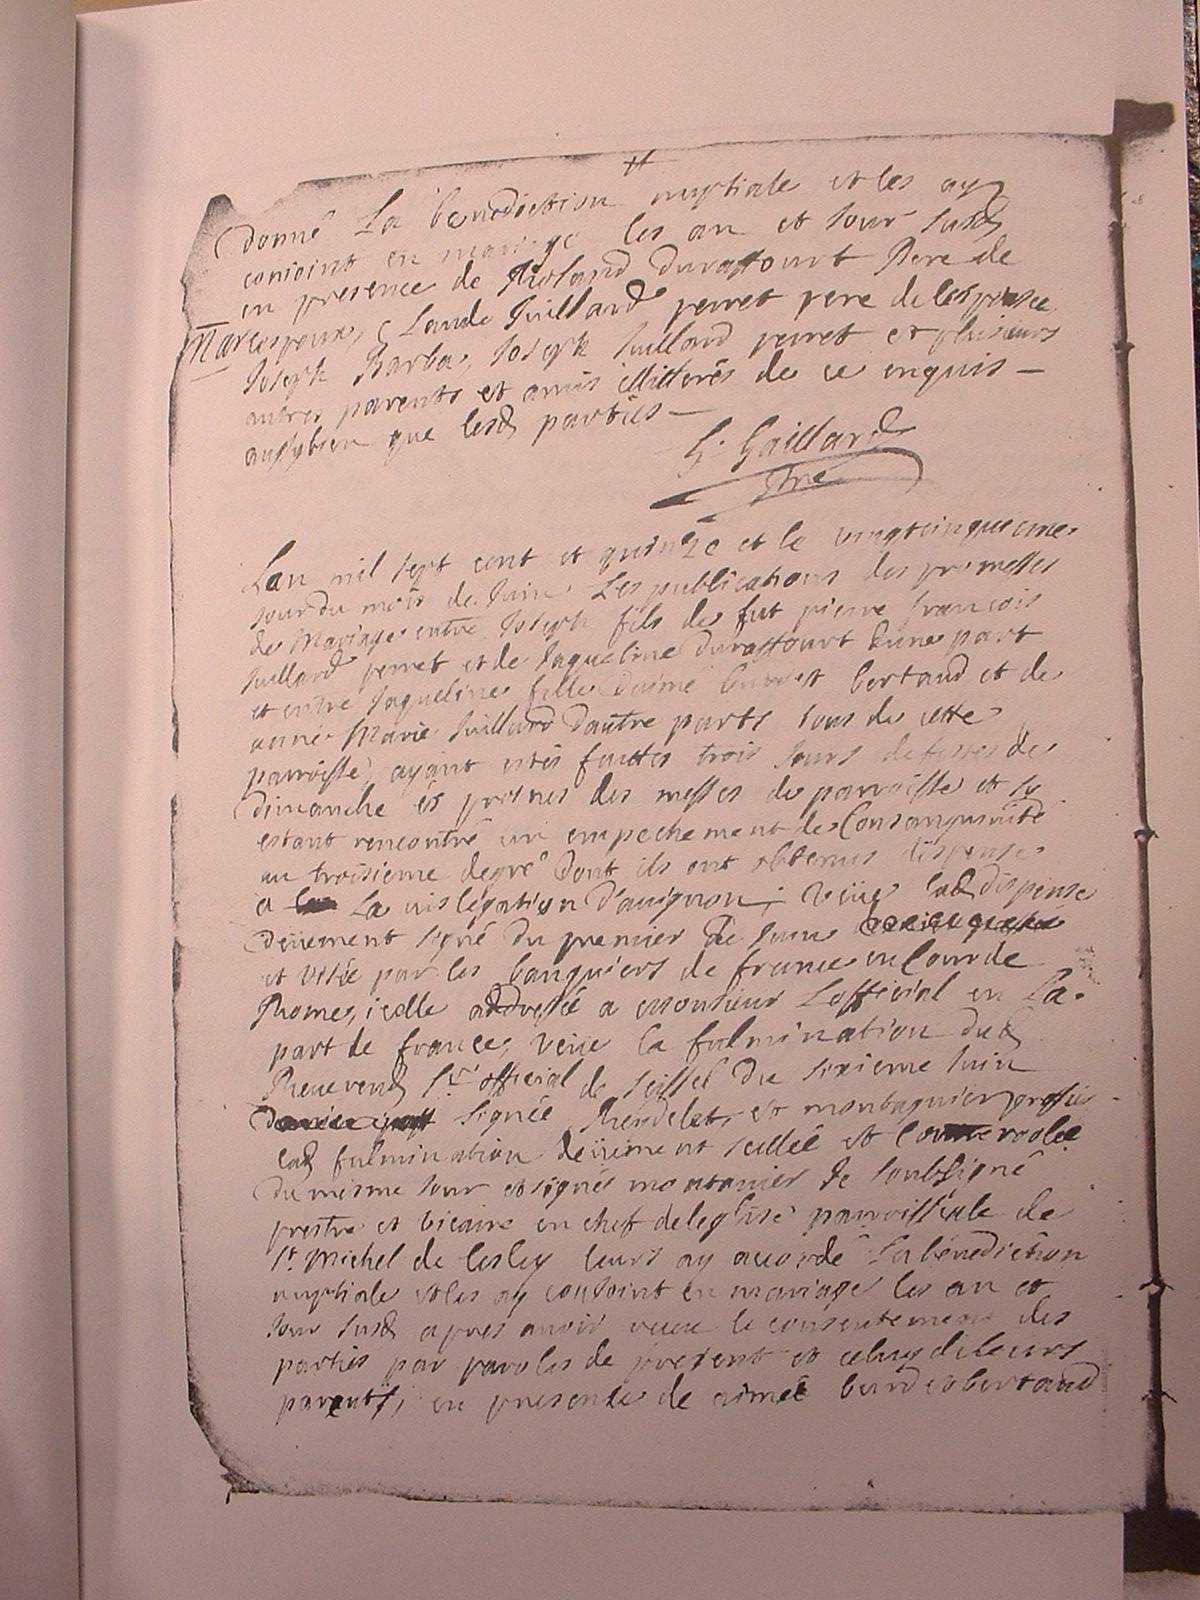 donné La benediction nuptiale et les ay
conioint en mariage les an et Jour susd
en presence de Roland Duraffourt Pere de
lespoux, Claude Juillard perret pere de lespouse
Joseph Barba, Joseph Juillard perret et plusieurs
autres parents et amis illitterés de ce enquis
aussybien que lesd parties
G. Gaillard
ptre
Mar
Lan mil sept cent et quinze et le vingtcinquieme
Jour du mois de Juin Les publications des promesses
de Mariage entre Joseph fils de fut pierre francois
Juillard perret et de Jaqueline Duraffourt dune part
et entre Jaqueline fille daimé burdet bertaud et de
anne Marie Juillard dautre parts tous de cette
parroisse, ayant estés faittes trois Jours de festes de
dimanche és prosnes des messes de parroisse et sy
estant rencontré un empechement de Consanguinité
au troisieme degré dont ils ont obtenus dispense
a La vislegation d'avignon; veüe lad dispense
deüement signé du premier de Juin
et visée par les banquiers de france en Cour de
Rome, icelle addressée a monsieur Lofficial en La
part de france, veüe la fulmination dud
Reverend Sr official de seissel du sixieme Juin
signée Rendelet et montagnier
lad fulmination deüement scellée et Controolée
du mesme Jour et signée montanier Je soubsigné
prestre et vicaire en chef de leglise parroissiale de
St. Michel de lesley leurs ay accordé La bénédiction
nuptiale et les ay conioint en mariage les an et
Jour susd apres avoir receu le consentement des
parties par paroles de present et celuy de leurs
parents, en presence de aimé burdet bertaud